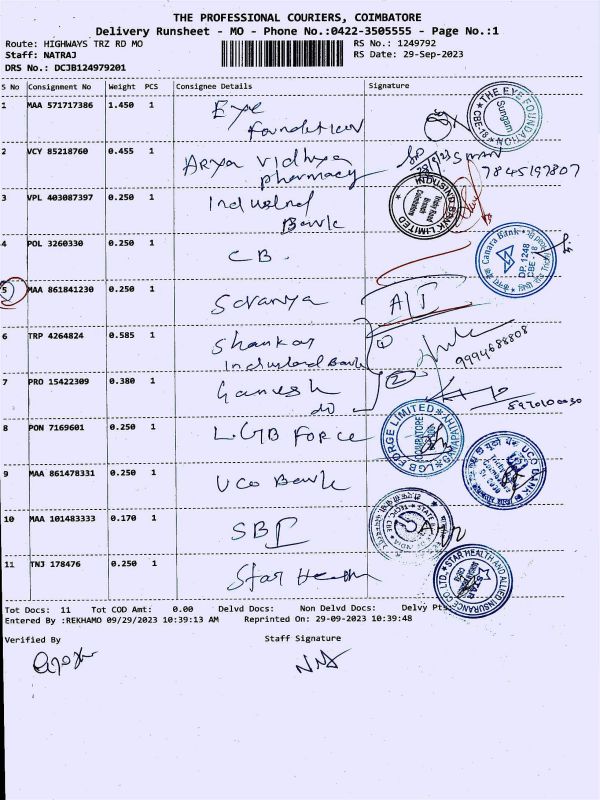 THE PROFESSIONAL COURIERS, COIMBATORE
Delivery Runsheet - MO - Phone No.:0422-3505555 - Page No.:1
Route: HIGHWAYS TRZ RD MO RS No.: 1249792
Staff: NATRAJ RS Date: 29-Sep-2023
DRS No.: DCJB124979201
S No Consignment No Weight PCS Consignee Details Signature
1 MAA 571717386 1.450 1 Eye Foundation
THE EYE FOUNDATION CBE-18 Sungam
2 VCY 85218760 0.455 1 Arya Vidhya pharmacy
7845197807
3 VPL 403087397 0.250 1 Indusind Bank
INDUSIND BANK LIMITED
4 POL 3260330 0.250 1 CB.
Canara Bank DP. 1248 CBE - 18
5 MAA 861841230 0.250 1 Saranya
6 TRP 4264824 0.585 1 Shankar Indusland Bank
1 9994688808
7 PRO 15422309 0.380 1 Ganesh do
2
8 PON 7169601 0.250 1 LGB Force
LGB FORGE LIMITED COIMBATORE
9 MAA 861478331 0.250 1 UCO Bank
UCO BANK
10 MAA 101483333 0.170 1 SBI
11 TNJ 178476 0.250 1 Star Health
STAR HEALTH AND ALLIED INSURANCE CO LTD. STAR
Tot Docs: 11 Tot COD Amt: 0.00 Delvd Docs: Non Delvd Docs: Delvy Pts:
Entered By :REKHAMO 09/29/2023 10:39:13 AM Reprinted On: 29-09-2023 10:39:48
Verified By Staff Signature